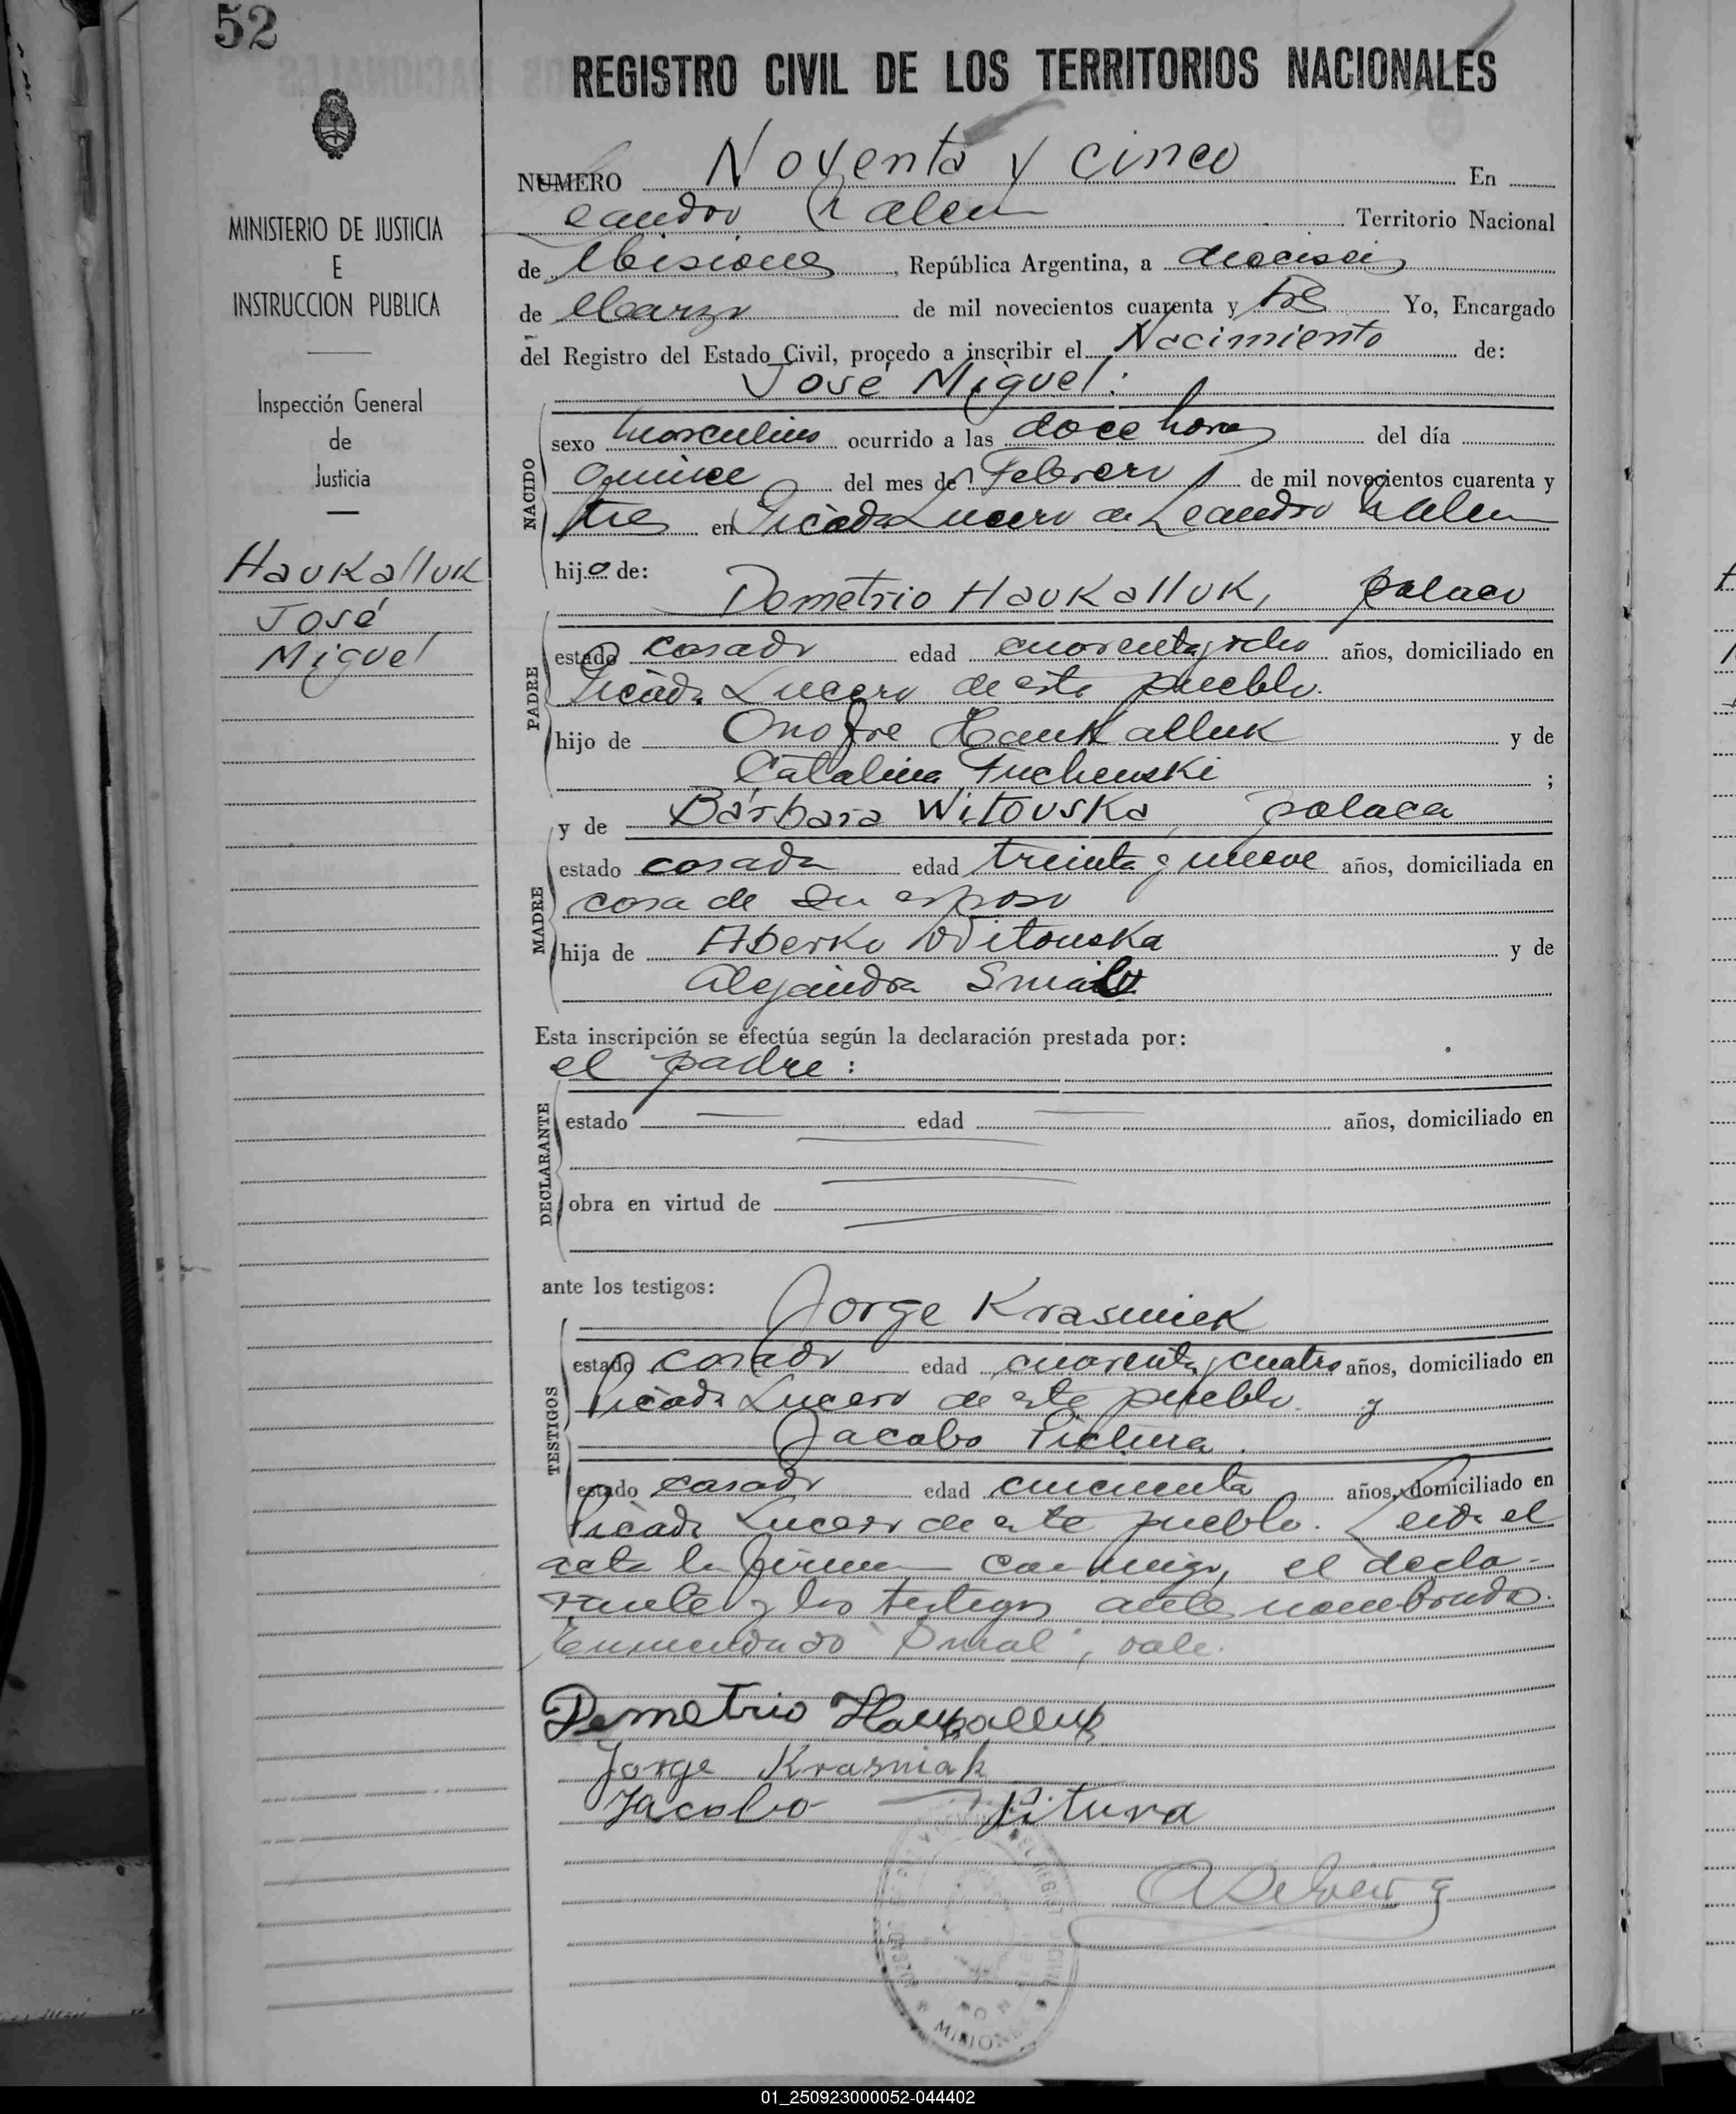 52
REGISTRO CIVIL DE LOS TERRITORIOS NACIONALES
MINISTERIO DE JUSTICIA
E
INSTRUCCION PUBLICA
Inspección General
de
Justicia
Haukalluk
José
Miguel
NUMERO Noventa y cinco En
Leandro N. Alem Territorio Nacional
de Misiones, República Argentina, a dieciseis
de Marzo de mil novecientos cuarenta y tres Yo, Encargado
del Registro del Estado Civil, procedo a inscribir el Nacimiento de:
José Miguel:
NACIDO
sexo masculino ocurrido a las doce horas del día
quince del mes de Febrero de mil novecientos cuarenta y
tres en Picada Lucero de Leandro N. Alem
hijo de:
Demetrio Haukalluk, polaco
PADRE
estado casado edad cuarenta y ocho años, domiciliado en
Picada Lucero de este pueblo.
hijo de Onofre Haukalluk y de
Catalina Fuchenski ;
y de Bárbara Witouska, polaca
MADRE
estado casada edad treinta y nueve años, domiciliada en
casa de su esposo
hija de Aberko Witouska y de
Alejandra Smal
Esta inscripción se efectúa según la declaración prestada por:
el padre:
DECLARANTE
estado edad años, domiciliado en
obra en virtud de
ante los testigos:
Jorge Krasniek
TESTIGOS
estado casado edad cuarenta y cuatro años, domiciliado en
Picada Lucero de este pueblo. y
Jacobo Pictura.
estado casado edad cincuenta años, domiciliado en
Picada Lucero de este pueblo. Leida el
acta la firman conmigo, el decla-
rante y los testigos antes nombrados.
Enmendado "Smal", vale.
Demetrio Haukalluk
Jorge Krasniak
Jacobo Pitura
MISIONES
01_250923000052-044402